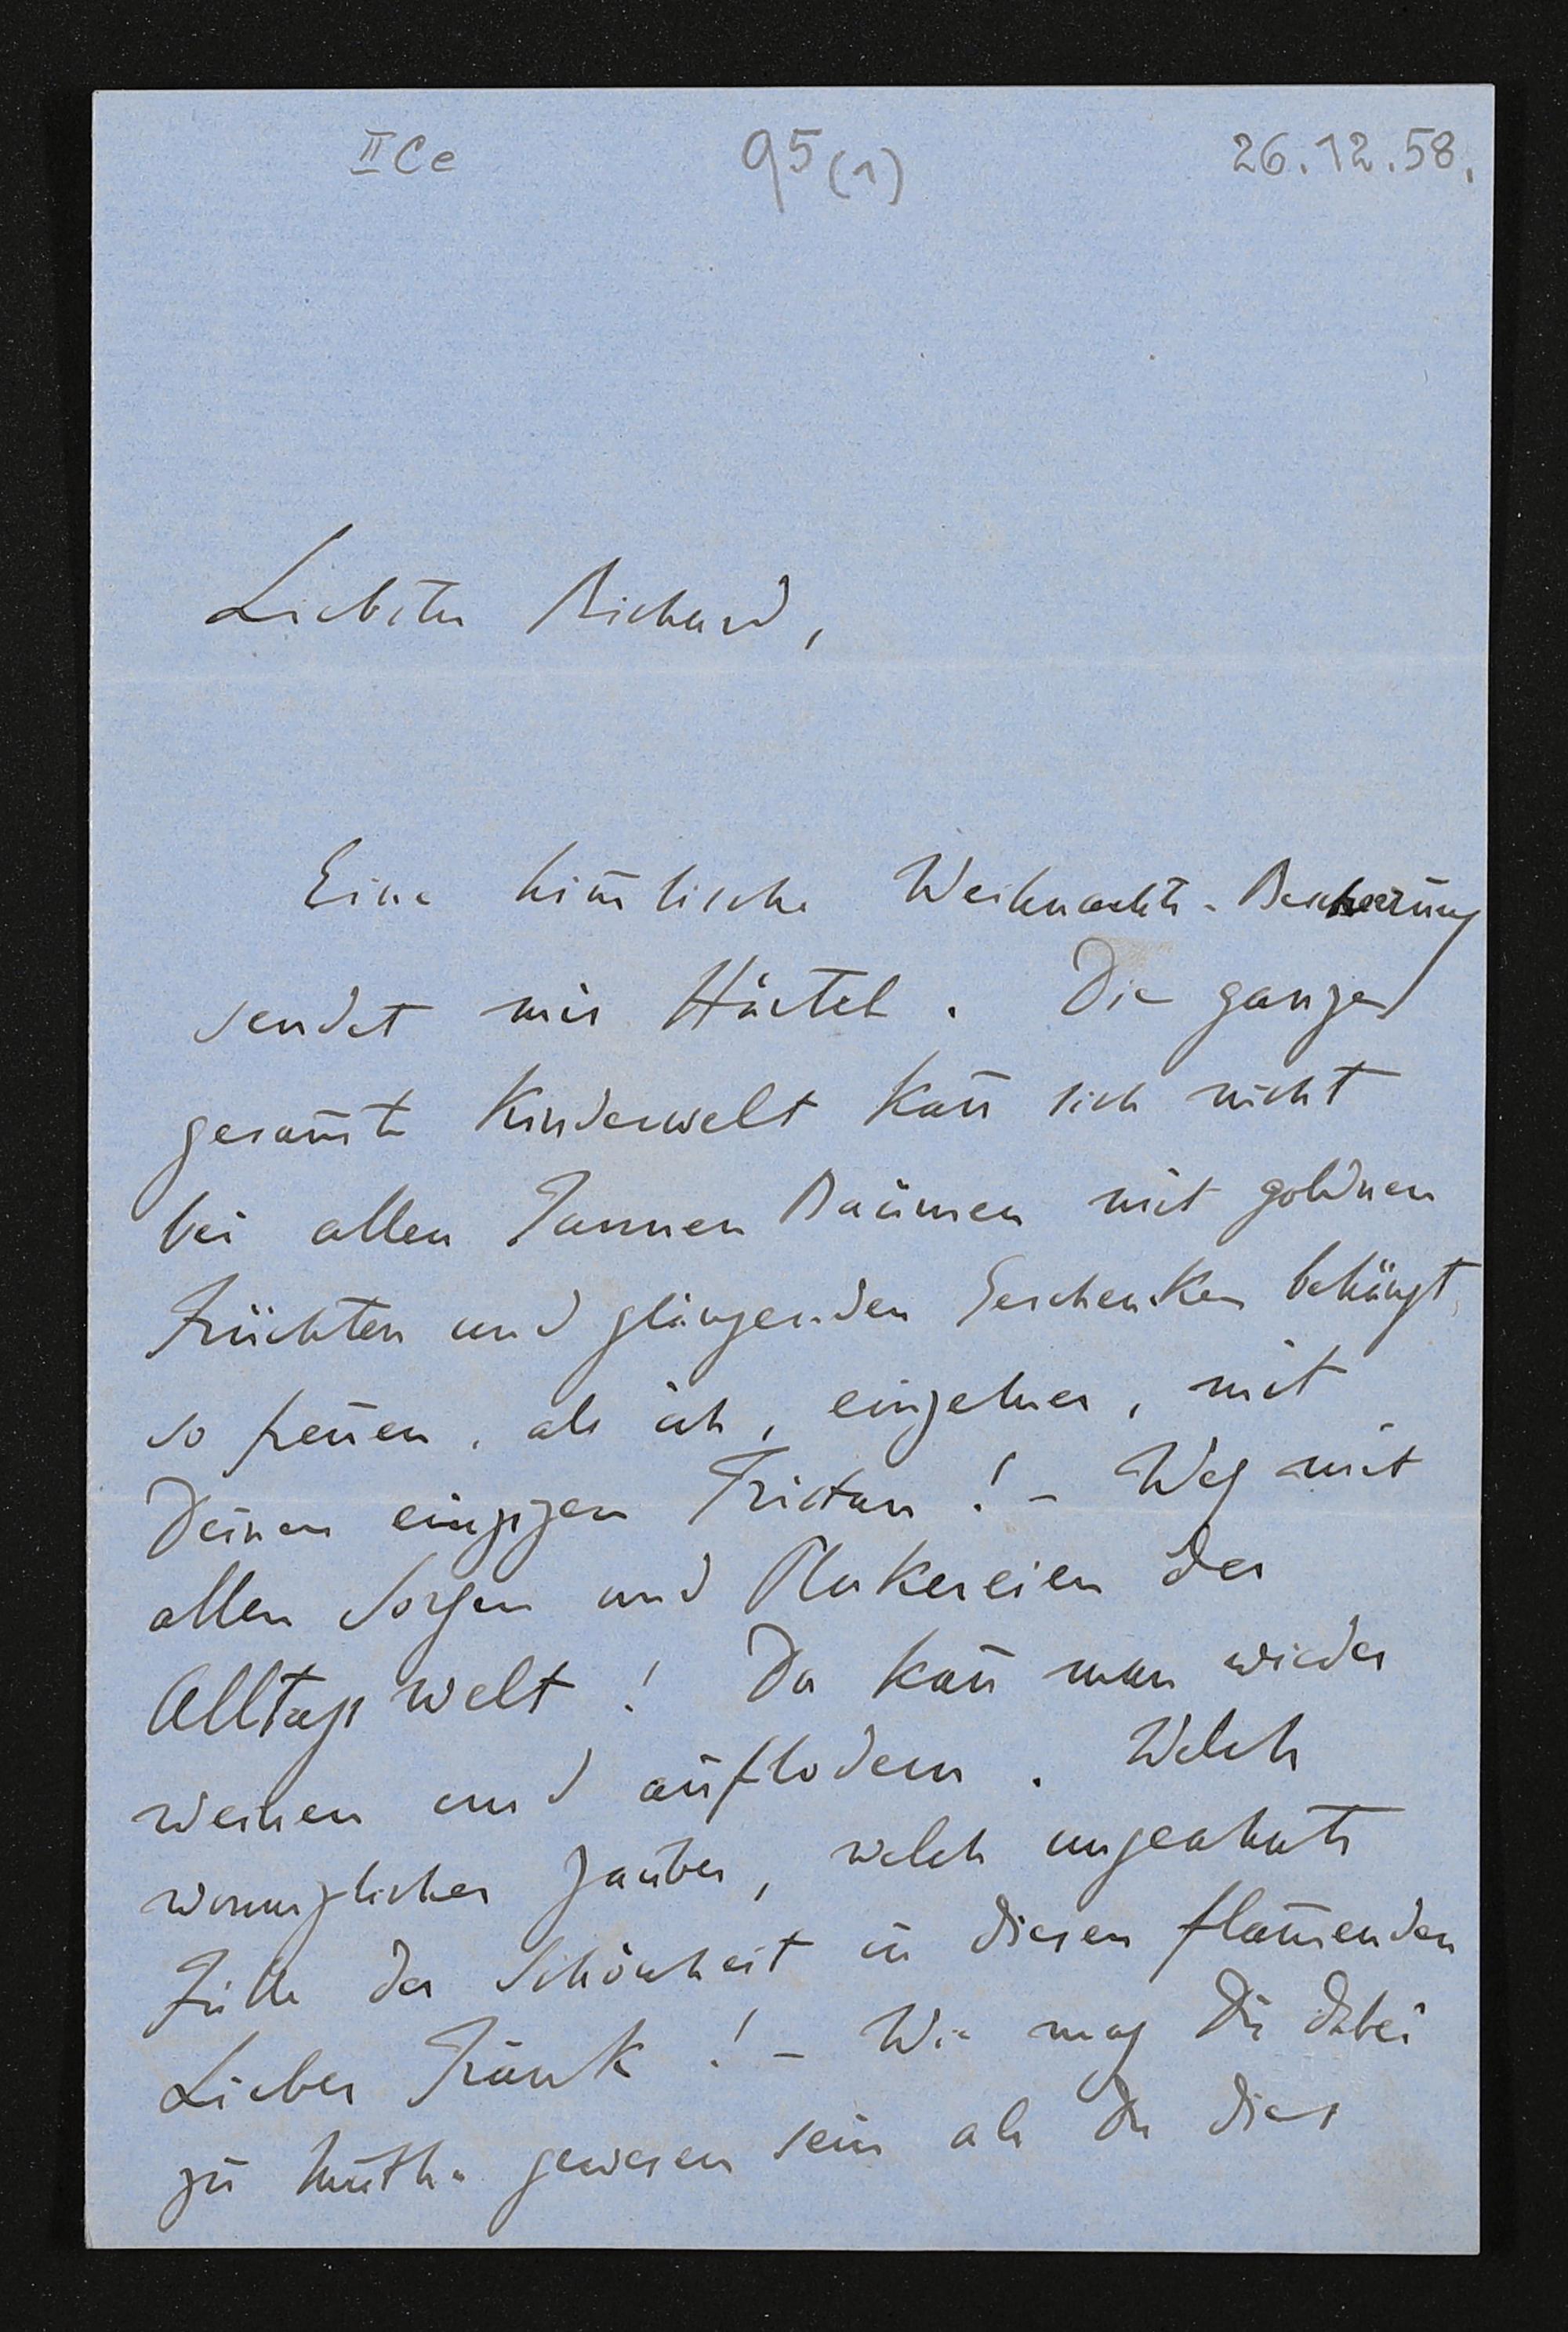 II Ce 95(1) 26.12.58.
Liebster Richard,
Eine him̄lische Weihnachts-Bescheerung
sendet mir Härtel. Die ganze
gesam̄te Kinderwelt kan̄ sich nicht
bei allen Tannen Bäumen mit goldnen
Früchten und glänzenden Geschenken behängt,
so freuen, als ich, einzelner, mit
Deinen einzigen Tristan! – Weg mit
allen Sorgen und Plakereien der
Alltags welt! Da kan̄ man wieder
weinen und auflodern. Welch
wonniglicher Zauber, welch ungeahnte
Fülle der Schönheit in diesen flam̄enden
Liebes Trank! – Wie mag Dir dabei
zu Muthe gewesen sein als Du dies